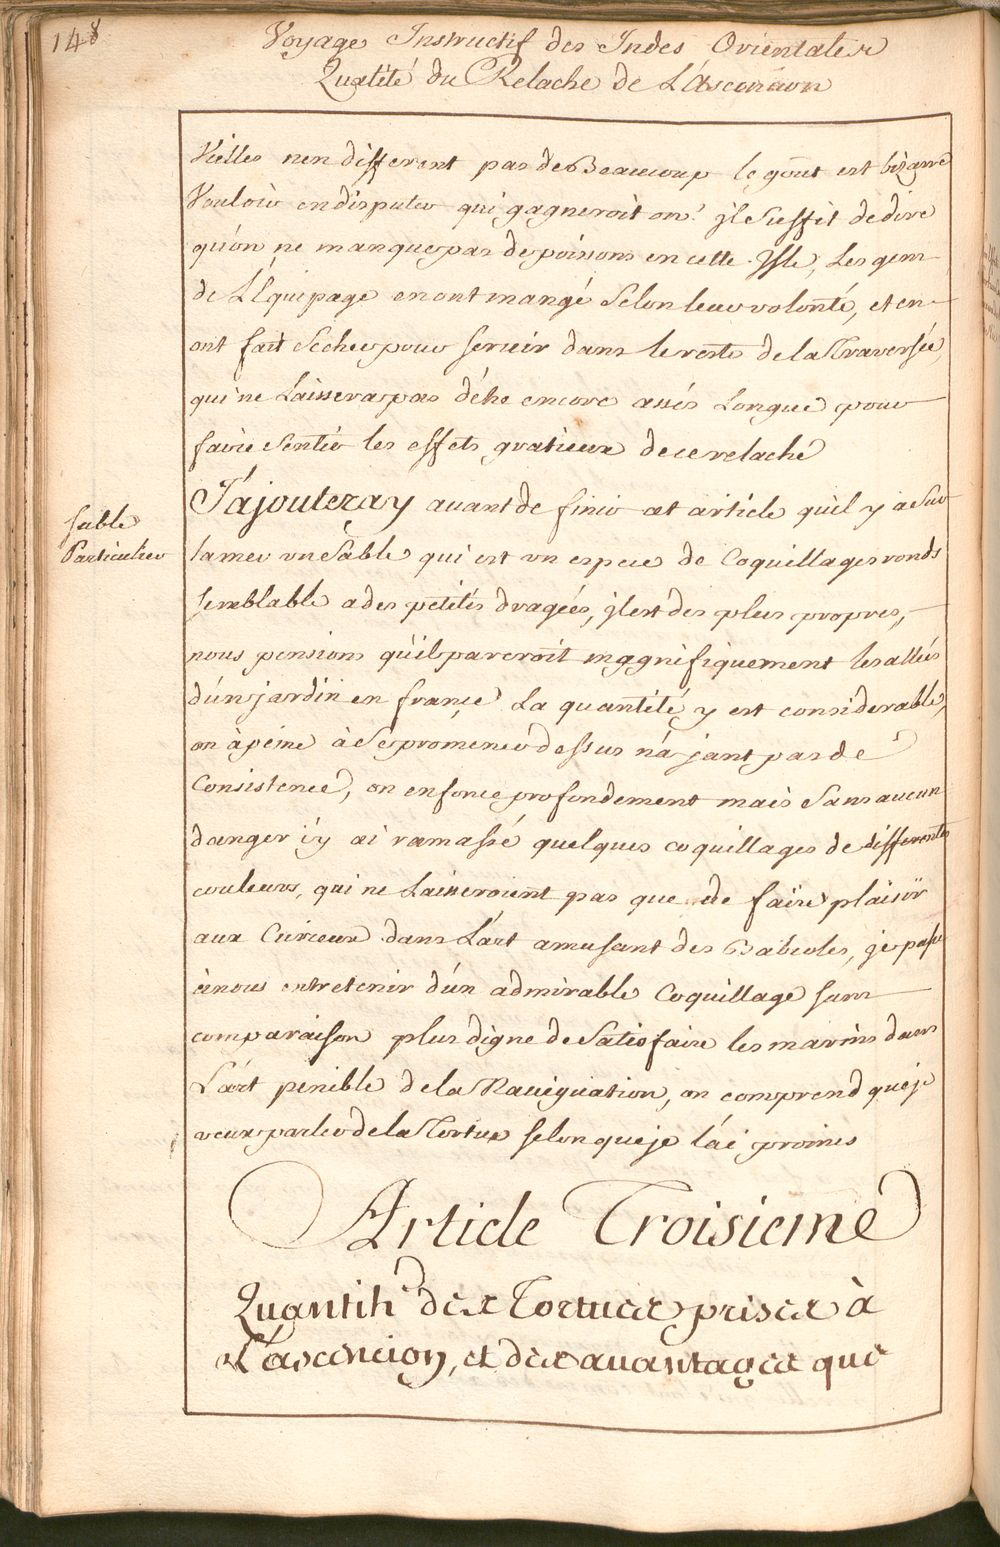 148
Voyage Instructif des Indes Orientales
Qualité du Relache de L'Ascencion
Vielles nen different pas de Beaucoup le goût est bizarre
Vouloir en disputer qui gagneroit on? jl Suffit de dire
qu'on ne manque pas de poissons en cette Isle, Les gens
de L'Equipage en ont mangé Selon leur volonté, et en
ont fait Secher pour servir dans le reste de la Traversée
qui ne Laissera pas d'éhe encore assés Longue pour
faire Sentir les effets gratieux de ce relache
J'ajouteray avant de finir cet article quil y a Sur
la mer un Sable qui est un espece de Coquillages ronds
semblable a des petites dragées, jl est des plus propres,
nous pensions qu'il pareroit magnifiquement les allées
d'un jardin en françe La quantité y est considerable,
on à peine à Se promener dessus n'ajant pas de
Consistence, on enfonce profondement mais Sans aucun
danger j'y ai ramassé quelques coquillages de differentes
couleurs, qui ne Laisseroient pas que de faire plaisir
aux Curieux dans L'art amusant des Babioles, je passe
à nous entretenir d'ún admirable Coquillage sans
comparaison plus digne de Satisfaire les marins dans
L'art penible de la Naviguation, on comprend que je
veux parler de la Tortue selon que je l'ai promis
sable
Particulier
Article Troisieme
Quantité des Tortues prises à
L'ascencion, et des avantages que